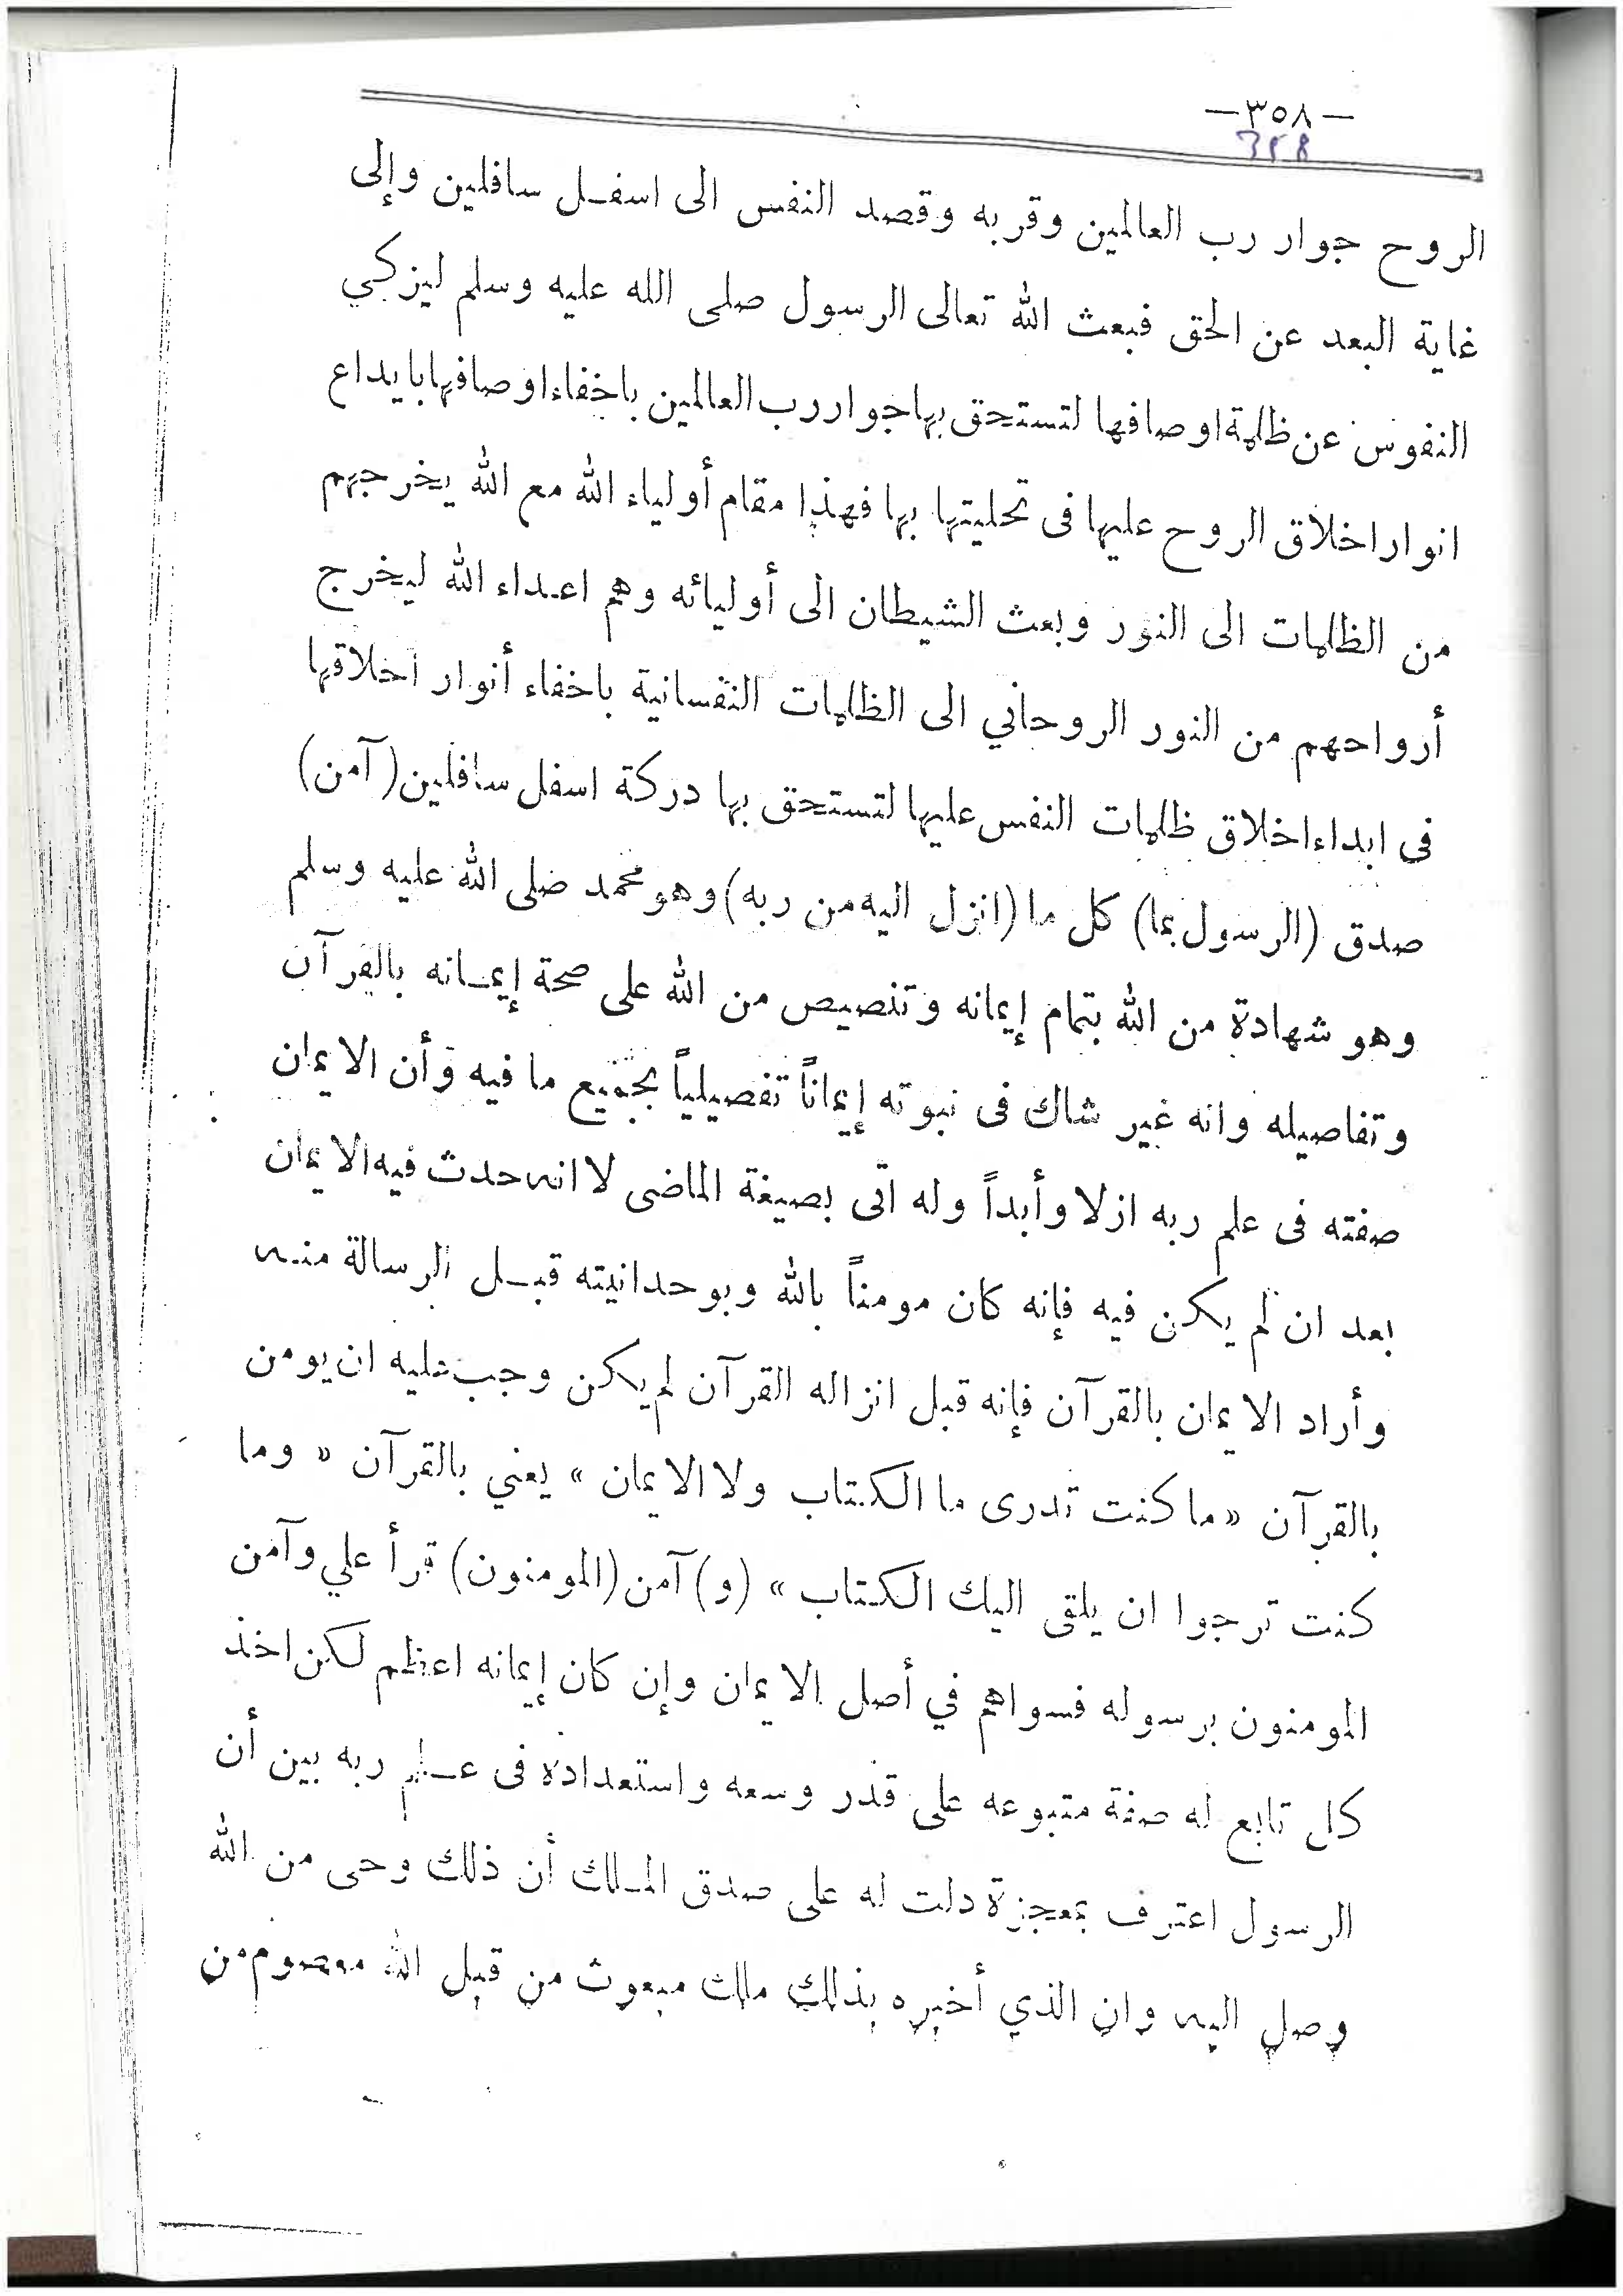 —٣٥٨—
358
الروح جوار رب العالمين وقربه وقصد النفس الى اسفل سافلين وإلى
غاية البعد عن الحق فبعث الله تعالى الرسول صلى الله عليه وسلم ليزكي
النفوس عن ظلمة اوصافها لتستحق بها جوار رب العالمين باخفاء اوصافها بايداع
انوار اخلاق الروح عليها فى تحليتها بها فهذا مقام أولياء الله مع الله يخرجهم
من الظلمات الى النور وبعث الشيطان الى أوليائه وهم اعداء الله ليخرج
أرواحهم من النور الروحاني الى الظلمات النفسانية باخفاء أنوار اخلاقها
فى ابداء اخلاق ظلمات النفس عليها لتستحق بها دركة اسفل سافلين (آمن)
صدق (الرسول بما) كل ما (انزل اليه من ربه) وهو محمد صلى الله عليه وسلم
وهو شهادة من الله بتمام إيمانه وتنصيص من الله على صحة إيمانه بالقرآن
وتفاصيله وانه غير شاك فى نبوته إيماناً تفصيلياً بجميع ما فيه وأن الايمان
صفته فى علم ربه ازلا وأبداً وله اتى بصيغة الماضى لا انه حدث فيه الايمان
بعد ان لم يكن فيه فإنه كان مومناً بالله وبوحدانيته قبل الرسالة منه
وأراد الايمان بالقرآن فإنه قبل انزاله القرآن لم يكن وجب عليه ان يومن
بالقرآن « ما كنت تدرى ما الكتاب ولا الايمان » يعني بالقرآن « وما
كنت ترجوا ان يلقى اليك الكتاب » (و) آمن (المومنون) قرأ علي وآمن
المومنون برسوله فسواهم في أصل الايمان وإن كان إيمانه اعظم لكن اخذ
كل تابع له صفة متبوعه على قدر وسعه واستعداده فى علم ربه بين أن
الرسول اعترف بمعجزة دلت له على صدق الملك أن ذلك وحى من الله
وصل اليه وان الذي أخبره بذلك ملك مبعوث من قبل الله معصوم من